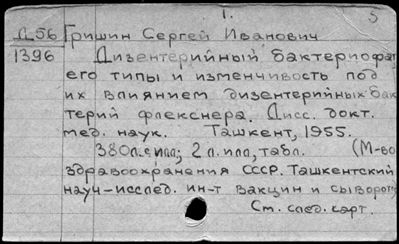 1. 5
Д56 Гришин Сергей Иванович
1396 Дизентерийный бактериофаг
его типы и изменчивость под
их влиянием дизентерийных бак
терий флекснера. Дисс. докт.
мед. наук. Ташкент, 1955.
380л. с илл; 2 л. илл, табл. (М-во
здравоохранения СССР. Ташкентский
науч-исслед. ин-т вакцин и сыворот
См. след. карт.